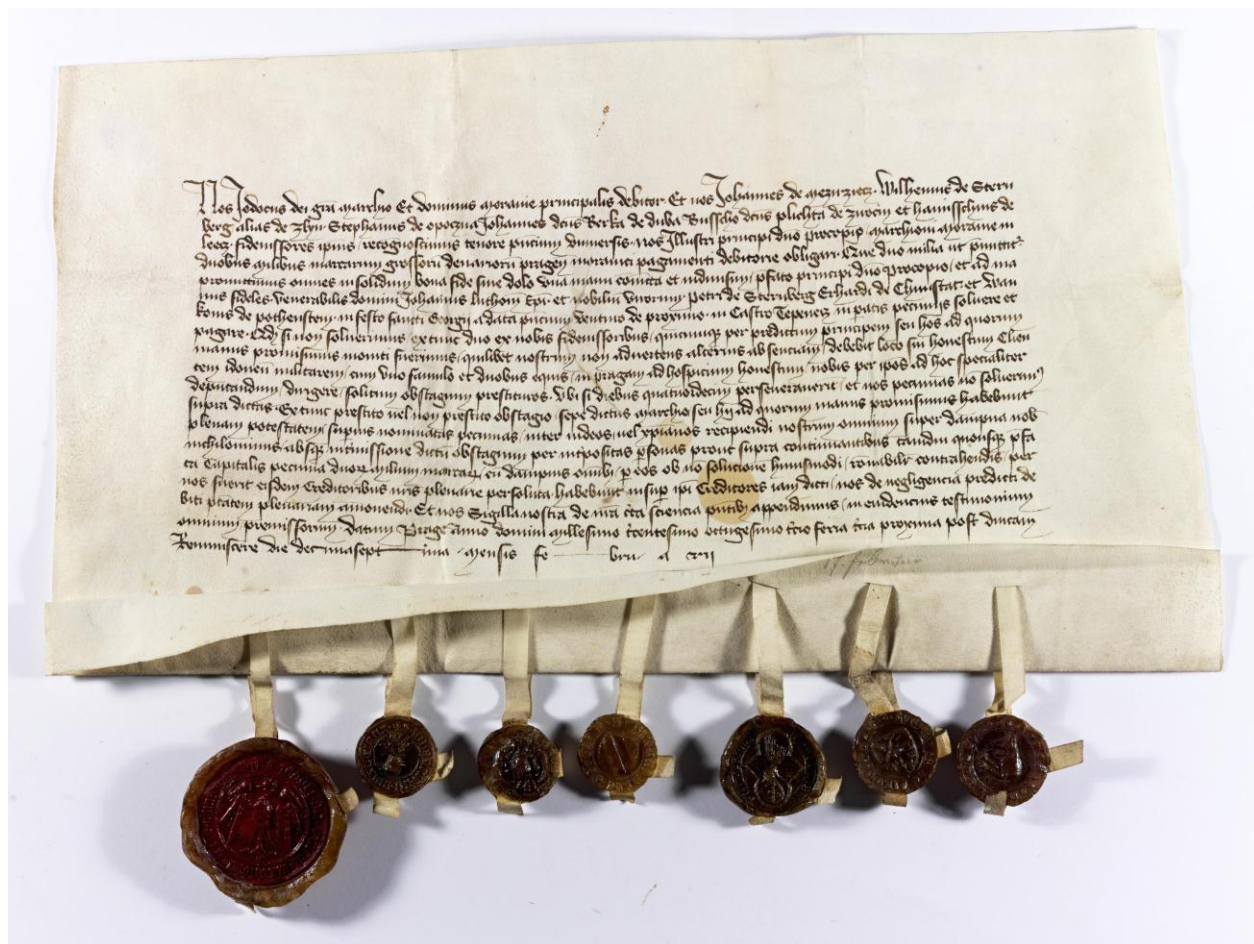 Nos Jodocus dei gra Marchio Et dominus Moravie principalis debitor Et nos Johannes de Mezirziecz Wilhelmus de Stern
berg alias de Zlyn Stephanus de Opoczna Johannes dcus Berka de Duba Busscho dcus Plichta de et Hannsschus de
fideiussores ipius recognoscimus tenore pncium universis nos Illustri principi dno Procopio Marchioni Moravie in
duobus milibus marcarum grossor denarior pragen moravici pagamenti debitorie obligari Que duo milia ut
promittimus omnes insolidum bona fide sine dolo una manu coniuncta et indivisim pfato principi dno Procopio et ad ma
nus fideles venerabilis domini Johannis Luthom Epi et nobilium virorum Petri de Sternberg Erhardi de Chunstat et Wan
konis de Pothenstein in festo sancti Georgii a data pncium venturo de proximo in Castro Tepenecz in paratis pecuniis solvere et
pagare Qd si non solverimus extunc duo ex nobis fideiussoribus quicumque per predictum principem seu hos ad quorum
manus promisimus moniti fuerimus quilibet nostrum non advertens alterius absenciam debebit loco sui honestum Clien
tem idoneum militarem cum uno famulo et duobus equis in Pragam ad hospicium honestum nobis per ipos ad hoc specialiter
deputandum dirigere solitum obstagium prestituros Ubi si diebus quatuordecim perseveraverit et nos pecunias no solverimus
supra dictas Extunc prestito vel non prestito obstagio sepedictus Marchio seu hii ad quorum manus promisimus habebunt
plenam potestatem supius nominatas pecunias inter iudeos vel xpianos recipiendi nostrum omnium super dampna nob
nichilominus absque intermissione dictum obstagium per personas prout supra continuantibus tamdiu quousque pfa
ta Capitalis pecunia duor milium marcar cu dampnis omibus p eos ob no solucione huiusmodi contrahendis per
nos fuerit eisdem Creditoribus nris plenarie persoluta habebunt insup ipi Creditores iam dicti nos de negligencia predicti de
biti ptatem plenariam amonendi Et nos Sigilla nostra de nra cta sciencia pntibus appendimus in evidencius testimonium
omnium premissorum Datum Prage Anno domini Millesimo trcentesimo octugesimo tcio feria tcia proxima post dnicam
Reminiscere die decimasept ima Mensis fe bru a rii
17. Februar